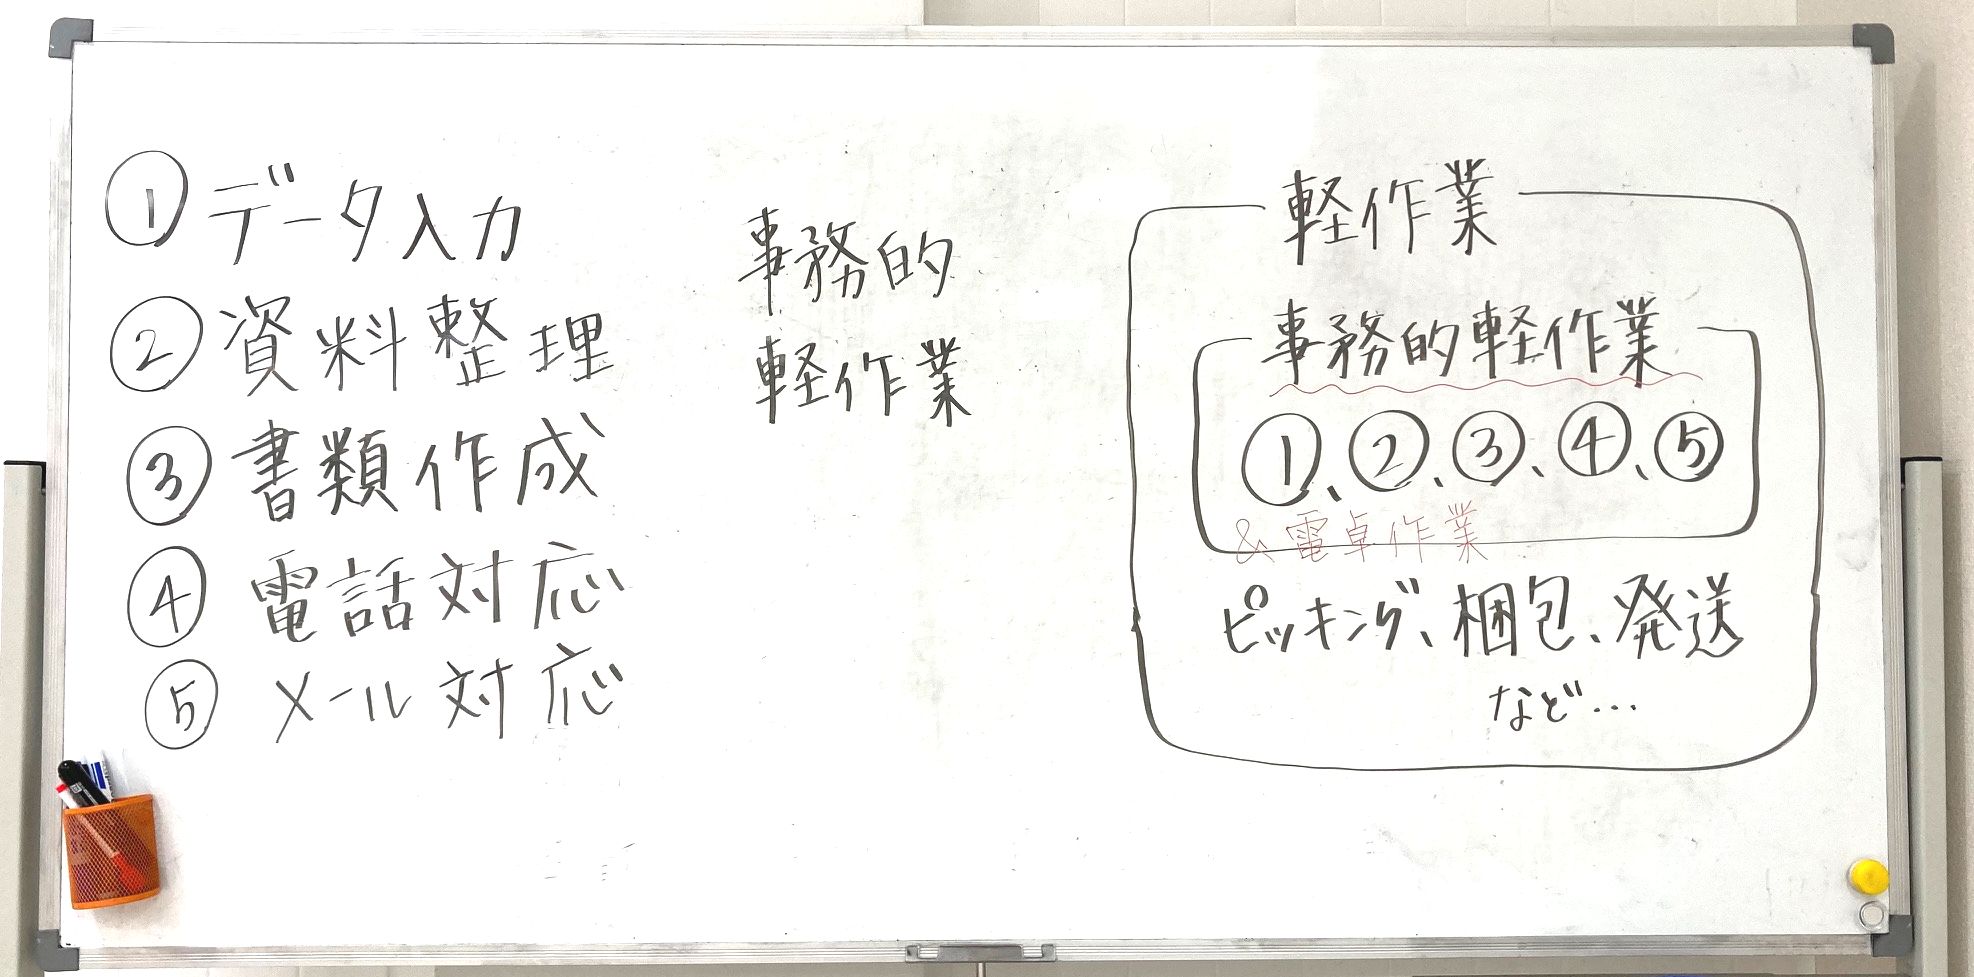 ① データ入力
② 資料整理
③ 書類作成
④ 電話対応
⑤ メール対応
事務的
軽作業
軽作業
事務的軽作業
①、②、③、④、⑤
& 電卓作業
ピッキング、梱包、発送
など…